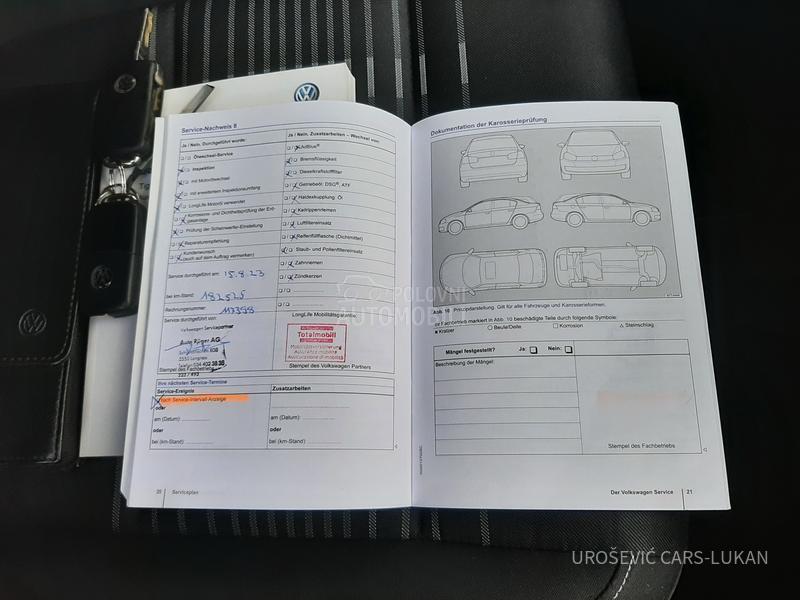 Service-Nachweis 8
Ja / Nein, Durchgeführt wurde:
Ölwechsel-Service
Inspektion
mit Motorölwechsel
mit erweitertem Inspektionsumfang
LongLife Motoröl verwendet
Korrosions- und Dichtheitsprüfung der
Prüfung der Scheinwerfer-Einstellung
Reparaturempfehlung
Kundenwunsch
(auch auf dem Auftrag vermerken)
Service durchgeführt am: 15.8.23
bei km-Stand: 182525
Rechnungsnummer:
Service durchgeführt von:
Volkswagen Servicepartner
AG
3550 Langnau
Stempel des Fachbetriebs
Ja / Nein, Zusatzarbeiten – Wechsel von:
AdBlue®
Bremsflüssigkeit
Dieselkraftstofffilter
Getriebeöl: DSG®, ATF
Haldexkupplung Öl
Keilrippenriemen
Luftfiltereinsatz
Reifenfüllflasche (Dichtmittel)
Staub- und Pollenfiltereinsatz
Zahnriemen
Zündkerzen
LongLife Mobilitätsgarantie:
Totalmobil!
Mobilitätsversicherung
Assurance mobilité
Assicurazione di mobilità
Stempel des Volkswagen Partners
Ihre nächsten Service-Termine
Service-Ereignis
Zusatzarbeiten
nach Service-Intervall-Anzeige
oder
am (Datum):
am (Datum):
oder
oder
bei (km-Stand):
bei (km-Stand):
20
Serviceplan
Dokumentation der Karosserieprüfung
Abb. 10 Prinzipdarstellung. Gilt für alle Fahrzeuge und Karosserieformen.
Fachbetrieb markiert in Abb. 10 beschädigte Teile durch folgende Symbole:
x Kratzer
○ Beule/Delle
□ Korrosion
△ Steinschlag
Mängel festgestellt?
Ja:
Nein:
Beschreibung der Mängel:
Stempel des Fachbetriebs
Der Volkswagen Service
21
POLOVNI
AUTOMOBILI
UROŠEVIĆ CARS-LUKAN